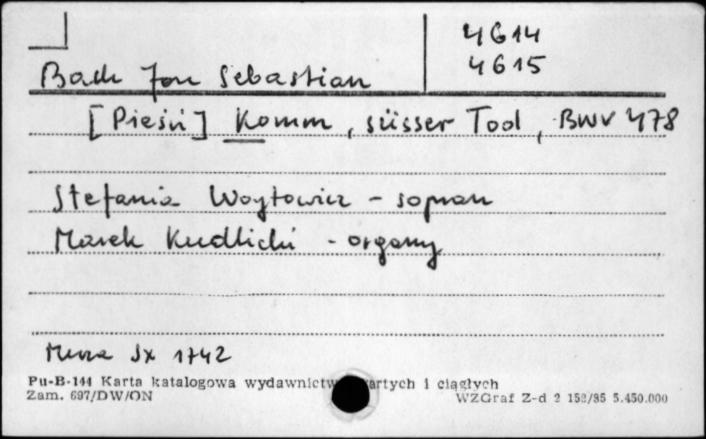 4614
4615
Bach Jan Sebastian
[Pieśń] Komm, süsser Tod, BWV 478
Stefania Woytowicz - sopran
Marek Kudlicki - organy
Muza Sx 1742
Pu-B-144 Karta katalogowa wydawnictw zwartych i ciągłych
Zam. 697/DW/ON WZGraf Z-d 2 152/85 5.450.000